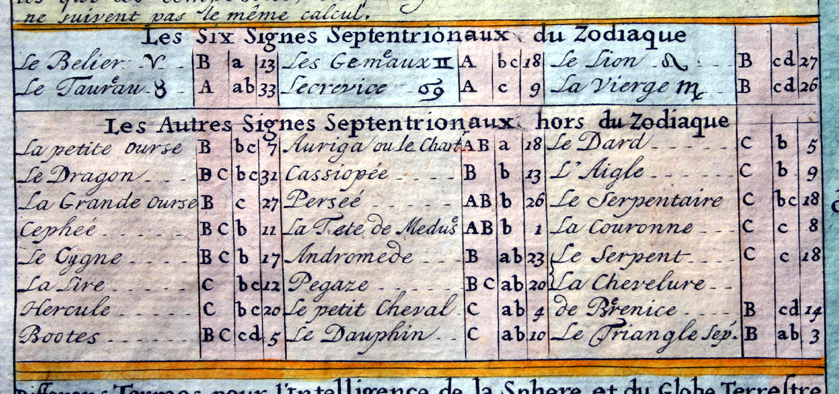 ne suivent pas le même calcul.
Les Six Signes Septentrionaux du Zodiaque
Le Belier ♈ B a 13 Les Gemeaux ♊ A bc 18 Le Lion ♌ B cd 27
Le Taurau ♉ A ab 33 Lecrevice ♋ A c 9 La Vierge ♍ B cd 26
Les Autres Signes Septentrionaux hors du Zodiaque
La petite ourse B bc 7 Auriga ou le Chart AB a 18 Le Dard C b 5
Le Dragon BC bc 31 Cassiopée B b 13 L'Aigle C b 9
La Grande ourse B c 27 Perseé AB b 26 Le Serpentaire C bc 18
Cepheé BC b 11 La Tete de Meduse AB b 1 La Couronne C c 8
Le Cygne BC b 17 Andromede B ab 23 Le Serpent C c 18
La Lire C bc 12 Pegaze BC ab 20 La Chevelure
Hercule C bc 20 Le petit Cheval C ab 4 de Brenice B cd 14
Bootes BC cd 5 Le Dauphin C ab 10 Le Triangle Sep. B ab 3
Differens Termes pour l'Intelligence de la Sphere et du Globe Terrestre